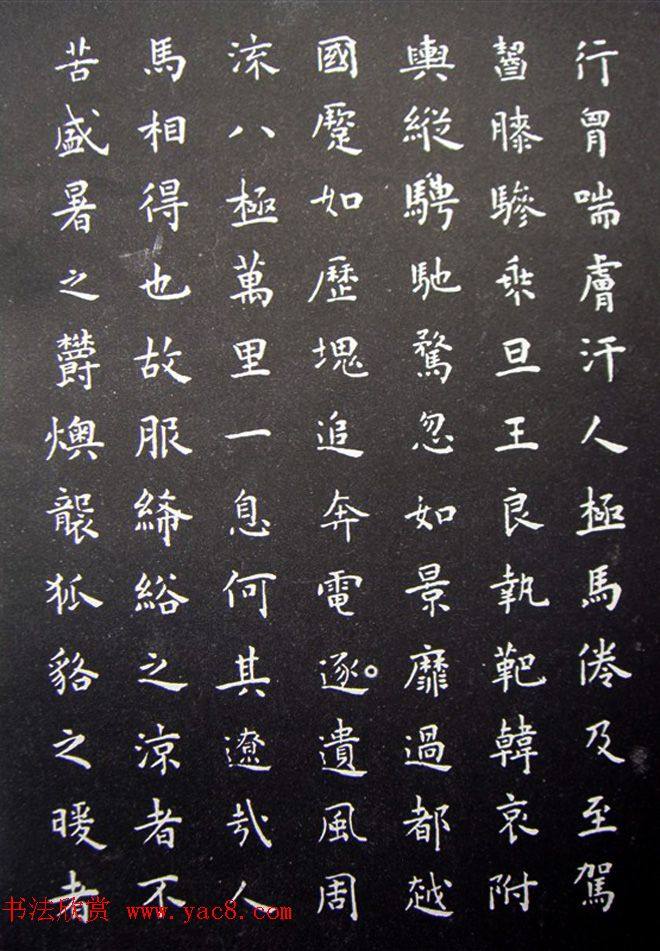 行胷喘膚汗人極馬倦及至駕
齧膝驂乘旦王良執靶韓哀附
輿縱騁馳騖忽如景靡過都越
國蹷如歷塊追奔電逐遺風周
流八極萬里一息何其遼哉人
馬相得也故服絺綌之涼者不
苦盛暑之欝燠襲狐貉之暖者
书法欣赏 www.yac8.com